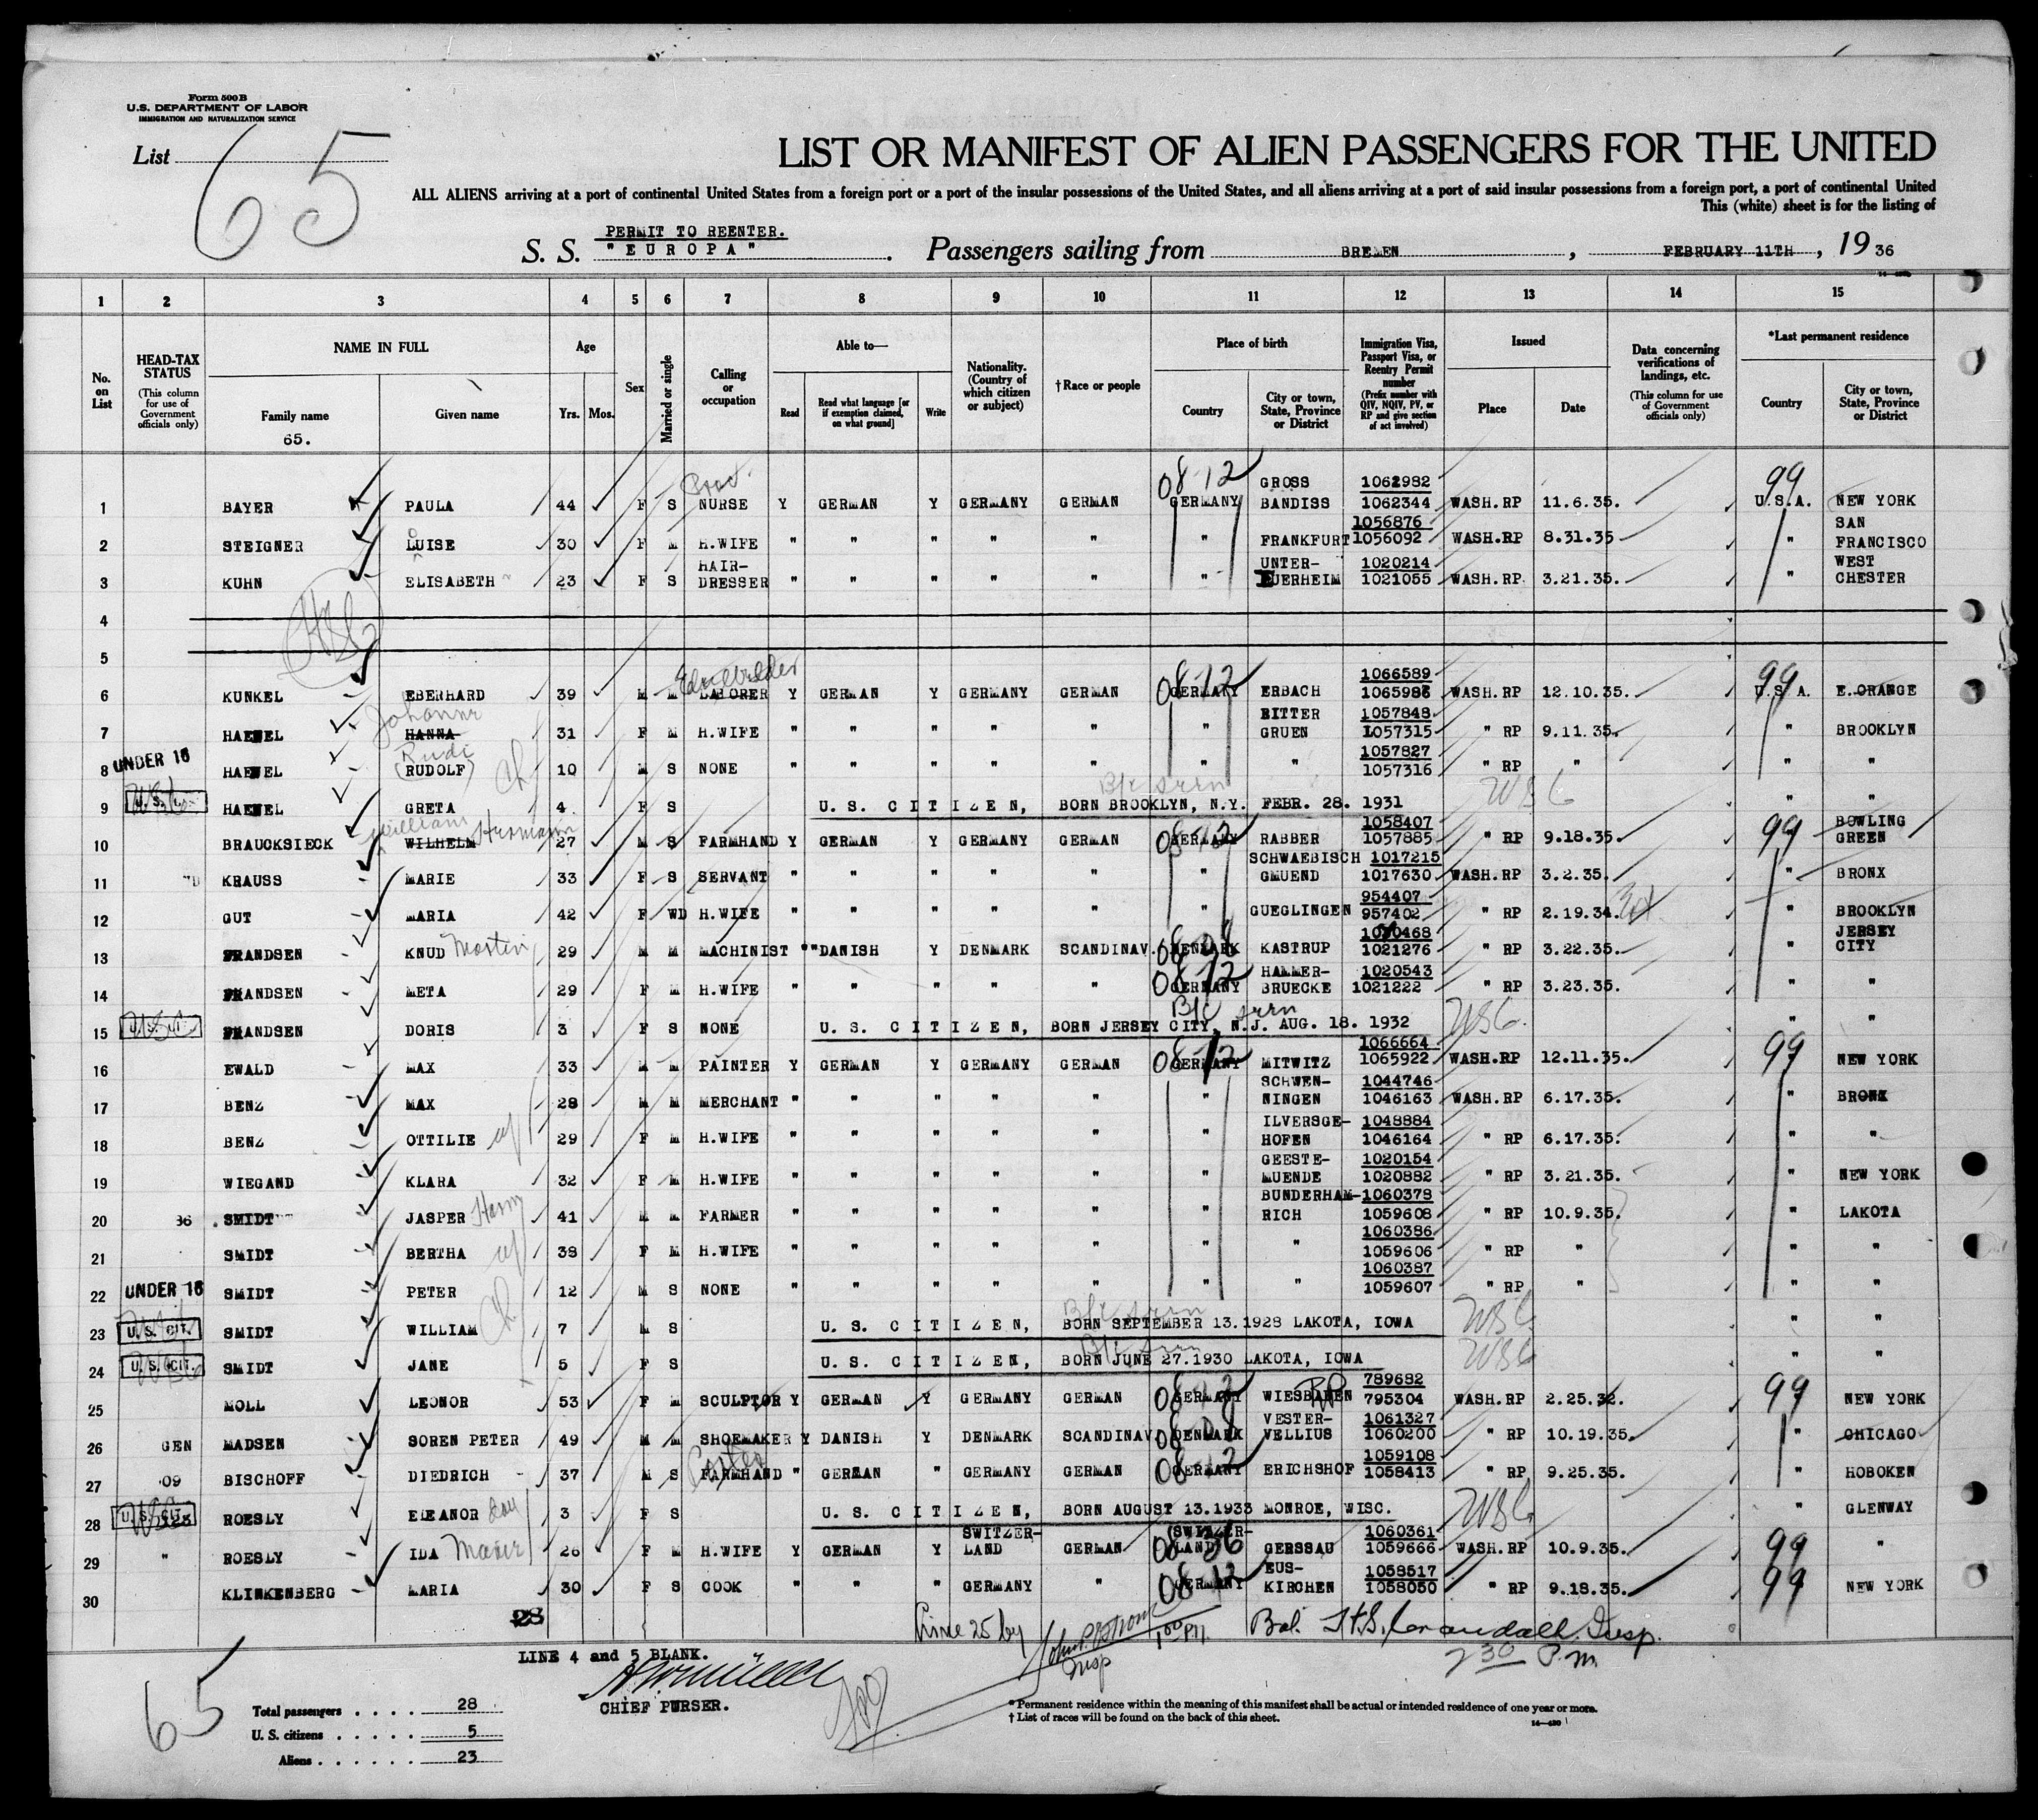 Form 500 B
U.S. DEPARTMENT OF LABOR
IMMIGRATION AND NATURALIZATION SERVICE
List 65
LIST OR MANIFEST OF ALIEN PASSENGERS FOR THE UNITED
ALL ALIENS arriving at a port of continental United States from a foreign port or a port of the insular possessions of the United States, and all aliens arriving at a port of said insular possessions from a foreign port, a port of continental United
This (white) sheet is for the listing of
PERMIT TO REENTER.
S. S. "EUROPA". Passengers sailing from BREMEN, FEBRUARY 11TH, 19 36
1 2 3 4 5 6 7 8 9 10 11 12 13 14 15
No. on List
HEAD-TAX STATUS (This column for use of Government officials only)
NAME IN FULL Family name Given name
65.
Age Yrs. Mos.
Sex
Married or single
Calling or occupation
Able to— Read Read what language [or if exemption claimed, on what ground] Write
Nationality. (Country of which citizen or subject)
† Race or people
Place of birth Country City or town, State, Province or District
Immigration Visa, Passport Visa, or Reentry Permit number (Prefix number with QIV, NQIV, PV, or RP and give section of act involved)
Issued Place Date
Data concerning verifications of landings, etc. (This column for use of Government officials only)
*Last permanent residence Country City or town, State, Province or District
1 BAYER PAULA 44 F S NURSE Y GERMAN Y GERMANY GERMAN 08-12 GERMANY GROSS BANDISS 1062982 1062344 WASH. RP 11.6.35. 99 U.S.A. NEW YORK
2 STEIGNER LUISE 30 F M H.WIFE " " " " " " FRANKFURT 1056876 1056092 WASH.RP 8.31.35 " SAN FRANCISCO
3 KUHN ELISABETH 23 F S HAIR-DRESSER " " " " " " UNTER-EUERHEIM 1020214 1021055 WASH.RP 3.21.35. " WEST CHESTER
4
5
6 KUNKEL EBERHARD 39 M M LABORER Y GERMAN Y GERMANY GERMAN 08-12 GERMANY ERBACH 1066589 1065986 WASH.RP 12.10.35. 99 U.S.A. E.ORANGE
7 HAENEL HANNA Johanne 31 F M H.WIFE " " " " " " RITTER GRUEN 1057848 1057315 " RP 9.11.35. " BROOKLYN
8 UNDER 16 HAENEL (RUDOLF) Rudi 10 M S NONE " " " " " " " 1057827 1057316 " RP " " "
9 U.S. CIT. HAENEL GRETA 4 F S U. S. CITIZEN, BORN BROOKLYN, N.Y. FEBR. 28. 1931 " "
10 BRAUCKSIECK WILHELM William Hermann 27 M S FARMHAND Y GERMAN Y GERMANY GERMAN 08-12 GERMANY RABBER 1058407 1057885 " RP 9.18.35. 99 BOWLING GREEN
11 KRAUSS MARIE 33 F S SERVANT " " " " " " SCHWAEBISCH GMUEND 1017215 1017630 WASH.RP 3.2.35. " BRONX
12 GUT MARIA 42 F WD H.WIFE " " " " " " GUEGLINGEN 954407 957402 " RP 2.19.34. " BROOKLYN
13 FRANDSEN KNUD Martin 29 M M MACHINIST " " DANISH Y DENMARK SCANDINAV. 08-08 DENMARK KASTRUP 1020468 1021276 " RP 3.22.35. " JERSEY CITY
14 FRANDSEN META 29 F M H.WIFE " " " " " 08-12 GERMANY HAMMER-BRUECKE 1020543 1021222 " RP 3.23.35. " "
15 U.S. CIT. FRANDSEN DORIS 3 F S NONE U. S. CITIZEN, BORN JERSEY CITY, N.J. AUG. 18. 1932 " "
16 EWALD MAX 33 M M PAINTER Y GERMAN Y GERMANY GERMAN 08-12 GERMANY MITWITZ 1066664 1065922 WASH.RP 12.11.35. 99 NEW YORK
17 BENZ MAX 28 M M MERCHANT " " " " " " SCHWEN-NINGEN 1044746 1046163 WASH.RP 6.17.35. " BRONX
18 BENZ OTTILIE 29 F M H.WIFE " " " " " " ILVERSGE-HOFEN 1048884 1046164 " RP 6.17.35. " "
19 WIEGAND KLARA 32 F M H.WIFE " " " " " " GEESTE-MUENDE 1020154 1020882 " RP 3.21.35. " NEW YORK
20 SMIDT JASPER Harm 41 M M FARMER " " " " " " BUNDERHAM-RICH 1060378 1059608 " RP 10.9.35. " LAKOTA
21 SMIDT BERTHA 38 F M H.WIFE " " " " " " " 1060386 1059606 " RP " " "
22 UNDER 16 SMIDT PETER 12 M S NONE " " " " " " " 1060387 1059607 " RP " " "
23 U. S. CIT. SMIDT WILLIAM 7 M S U. S. CITIZEN, BORN SEPTEMBER 13.1928 LAKOTA, IOWA " "
24 U. S. CIT. SMIDT JANE 5 F S U. S. CITIZEN, BORN JUNE 27.1930 LAKOTA, IOWA " "
25 MOLL LEONOR 53 F M SCULPTOR Y GERMAN Y GERMANY GERMAN 08-12 GERMANY WIESBADEN 789682 795304 WASH.RP 2.25.32. 99 NEW YORK
26 GEN MADSEN SOREN PETER 49 M M SHOEMAKER Y DANISH Y DENMARK SCANDINAV. 08-08 DENMARK VESTER-VELLIUS 1061327 1060200 " RP 10.19.35. " CHICAGO
27 09 BISCHOFF DIEDRICH 37 M S FARMHAND " GERMAN " GERMANY GERMAN 08-12 GERMANY ERICHSHOF 1059108 1058413 " RP 9.25.35. " HOBOKEN
28 U. S. CIT. ROESLY ELEANOR 3 F S U. S. CITIZEN, BORN AUGUST 13.1933 MONROE, WISC. " GLENWAY
29 " ROESLY IDA 26 F M H.WIFE Y GERMAN Y SWITZER-LAND GERMAN 08-36 SWITZER-LAND GERSSAU 1060361 1059666 WASH.RP 10.9.35. 99 "
30 KLINKENBERG MARIA 30 F S COOK " " " GERMANY " 08-12 GERMANY EUS-KIRCHEN 1058517 1058050 " RP 9.18.35. 99 NEW YORK
28
Line 25 by
Insp
1 00 PM.
Bal. Crandall Insp.
2 30 P.M.
LINE 4 and 5 BLANK.
CHIEF PURSER.
65
Total passengers . . . . 28
U. S. citizens . . . . . 5
Aliens . . . . . . 23
* Permanent residence within the meaning of this manifest shall be actual or intended residence of one year or more.
† List of races will be found on the back of this sheet.
14—430